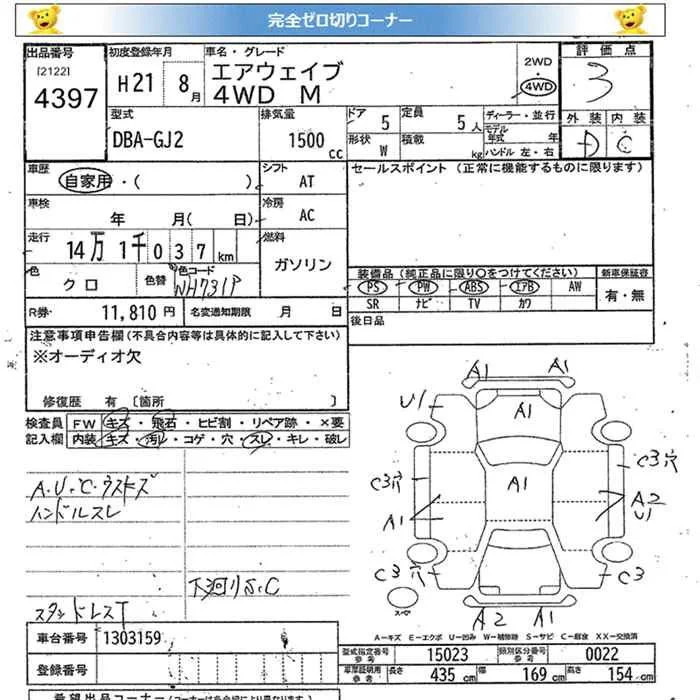 完全ゼロ切りコーナー
出品番号 初度登録年月 車名・グレード 評価点
[2122] 4397 H21 8月 エアウェイブ 2WD ・ 4WD 3
4WD M
外装 内装
D C
型式 排気量 ドア 定員 ディーラー・並行
DBA-GJ2 1500cc 5 5人 モデル年式 年
形状 積載 ハンドル 左・右
W kg
車歴 シフト セールスポイント (正常に機能するものに限ります)
自家用・( ) AT
車検 冷房
年 月( 日) AC
走行 燃料
14万 1千 0 3 7 km ガソリン
色 色替 色コード 装備品 (純正品に限り○をつけてください) 新車保証書
クロ NH731P PS PW ABS エアB AW 有・無
SR ナビ TV カワ
R券 11,810円 名変通知期限 月 日 後日品
注意事項申告欄(不具合内容等は具体的に記入して下さい)
※オーディオ欠
修復歴 有 〔箇所
検査員 FW キズ・飛石・ヒビ割・リペア跡・×要
記入欄 内装 キズ・汚れ・コゲ・穴・スレ・キレ・破レ
A.U.C.ウスキズ
ハンドルスレ
下廻りS.C
スタッドレスT
A1 A1
U1 A1
C3穴 A1 C3穴
A1 A2
U1
C3穴 C3
スペア
A2 A1
A－キズ E－エクボ U－凹み W－補修跡 S－サビ C－腐食 XX－交換済
車台番号 1303159
登録番号
型式指定番号 参考 15023 類別区分番号 参考 0022
車庫証明用 参考 長さ 435 cm 幅 169 cm 高さ 154 cm
希望出品コーナー